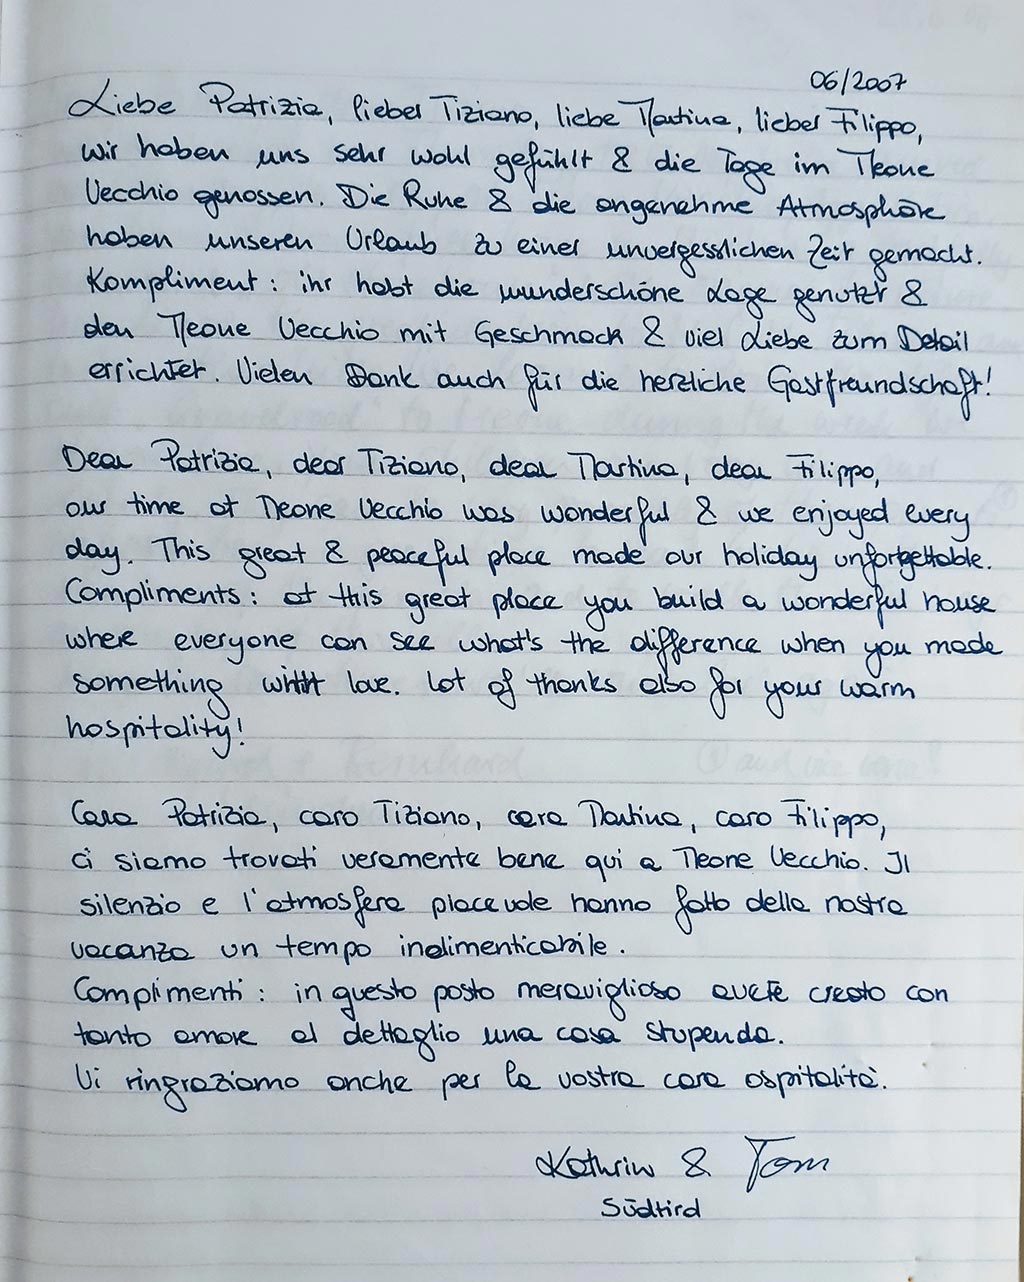 06/2007
Liebe Patrizia, lieber Tiziano, liebe Martina, lieber Filippo,
wir haben uns sehr wohl gefühlt & die Tage im Meone
Vecchio genossen. Die Ruhe & die angenehme Atmosphäre
haben unseren Urlaub zu einer unvergesslichen Zeit gemacht.
Kompliment: ihr habt die wunderschöne Lage genutzt &
den Meone Vecchio mit Geschmack & viel Liebe zum Detail
errichtet. Vielen Dank auch für die herzliche Gastfreundschaft!
Dear Patrizia, dear Tiziano, dear Martina, dear Filippo,
our time at Meone Vecchio was wonderful & we enjoyed every
day. This great & peaceful place made our holiday unforgettable.
Compliments: at this great place you build a wonderful house
where everyone can see what's the difference when you made
something with love. Lot of thanks also for your warm
hospitality!
Cara Patrizia, caro Tiziano, cara Martina, caro Filippo,
ci siamo trovati veramente bene qui a Meone Vecchio. Il
silenzio e l'atmosfera piacevole hanno fatto della nostra
vacanza un tempo indimenticabile.
Complimenti: in questo posto meraviglioso avete creato con
tanto amore al dettaglio una casa stupenda.
Vi ringraziamo anche per la vostra cara ospitalità.
Kathrin & Tom
Südtirol